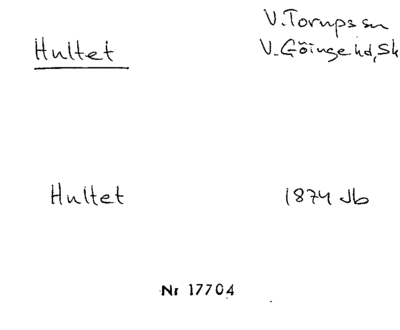 V. Torups sn
Hultet V. Göinge hd, Sk
Hultet 1874 Jb
Nr 17704